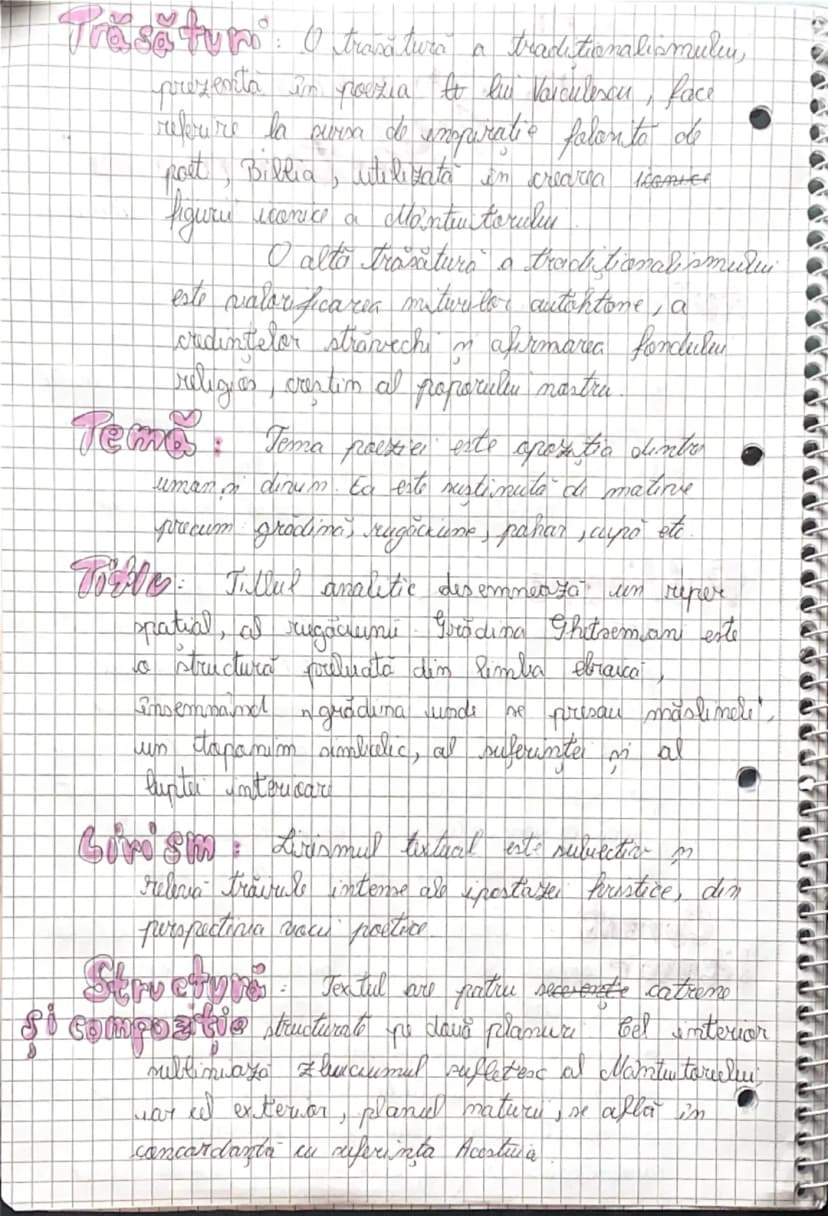 Trăsături: O trăsătură a tradiționalismului,
prezentă în poezia lui Voiculescu, face
referire la sursa de inspirație folosită de
poet, Biblia, utilizată în crearea iconice
figurii iconice a Mântuitorului.
O altă trăsătură a tradiționalismului
este valorificarea miturilor autohtone, a
credințelor străvechi și afirmarea fondului
religios, creștin al poporului nostru.
Temă: Tema poeziei este opoziția dintre
uman și divin. Ea este susținută de motive
precum grădină, rugăciune, pahar, cupă etc.
Titlu: Titlul analitic desemnează un reper
spațial, al rugăciunii. Grădina Ghetsemani este
o structură preluată din limba ebraică,
însemnând "grădina unde se presau măslinele",
un toponim simbolic, al suferinței și al
luptei interioare
Lirism: Lirismul textual este subiectiv și
relevă trăirile intense ale ipostazei hristice, din
perspectiva vocii poetice.
Structură: Textul are patru secvențe catrene
și compoziție structurate pe două planuri. Cel interior
subliniază zbuciumul sufletesc al Mântuitorului,
iar cel exterior, planul naturii, se află în
concordanță cu suferința Acestuia.